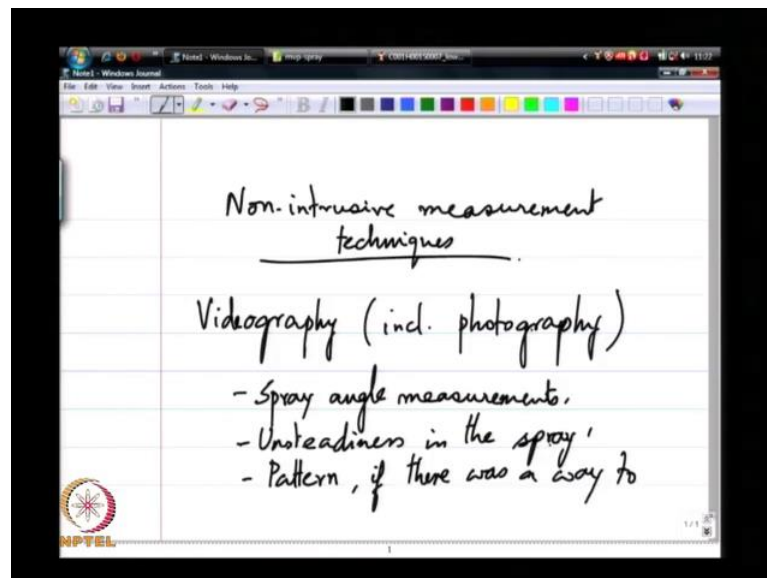 Note1 - Windows Jo... mvp-spray C001H001S0007_low... 11:22
Note1 - Windows Journal
File Edit View Insert Actions Tools Help
B I
Non-intrusive measurement
techniques
Videography (incl. photography)
- Spray angle measurements.
- Unsteadiness in the spray.
- Pattern, if there was a way to
1/1
NPTEL
1